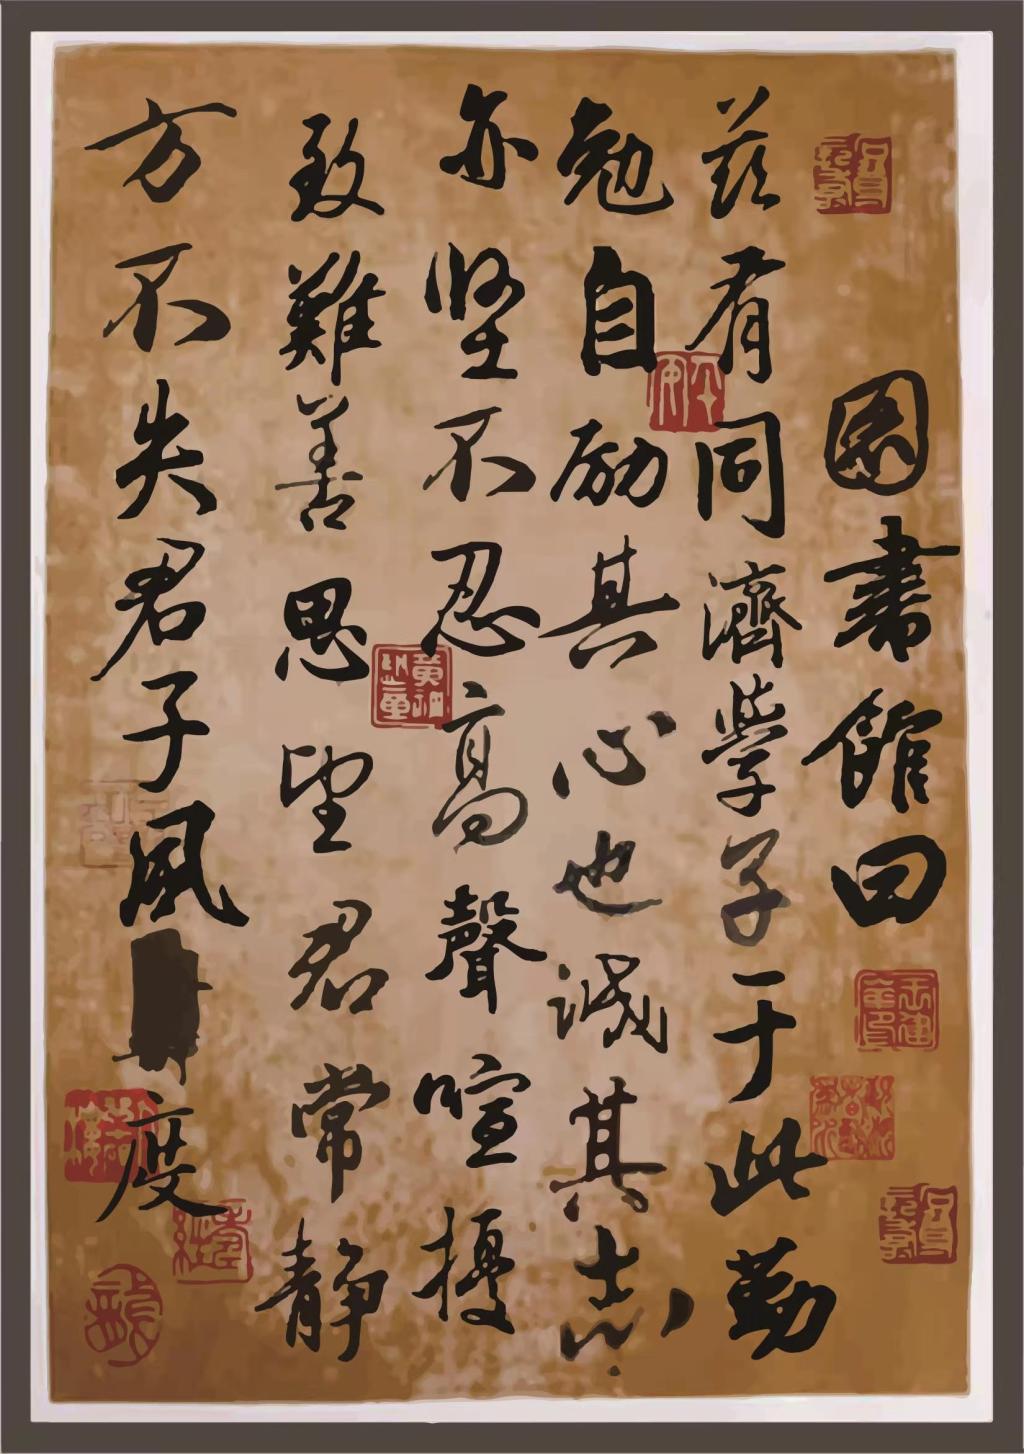 圕書館曰
茲有同濟學子于此勤
勉自励其心也诚其志
亦坚不忍高聲喧擾
致難善思望君常静
方不失君子風度